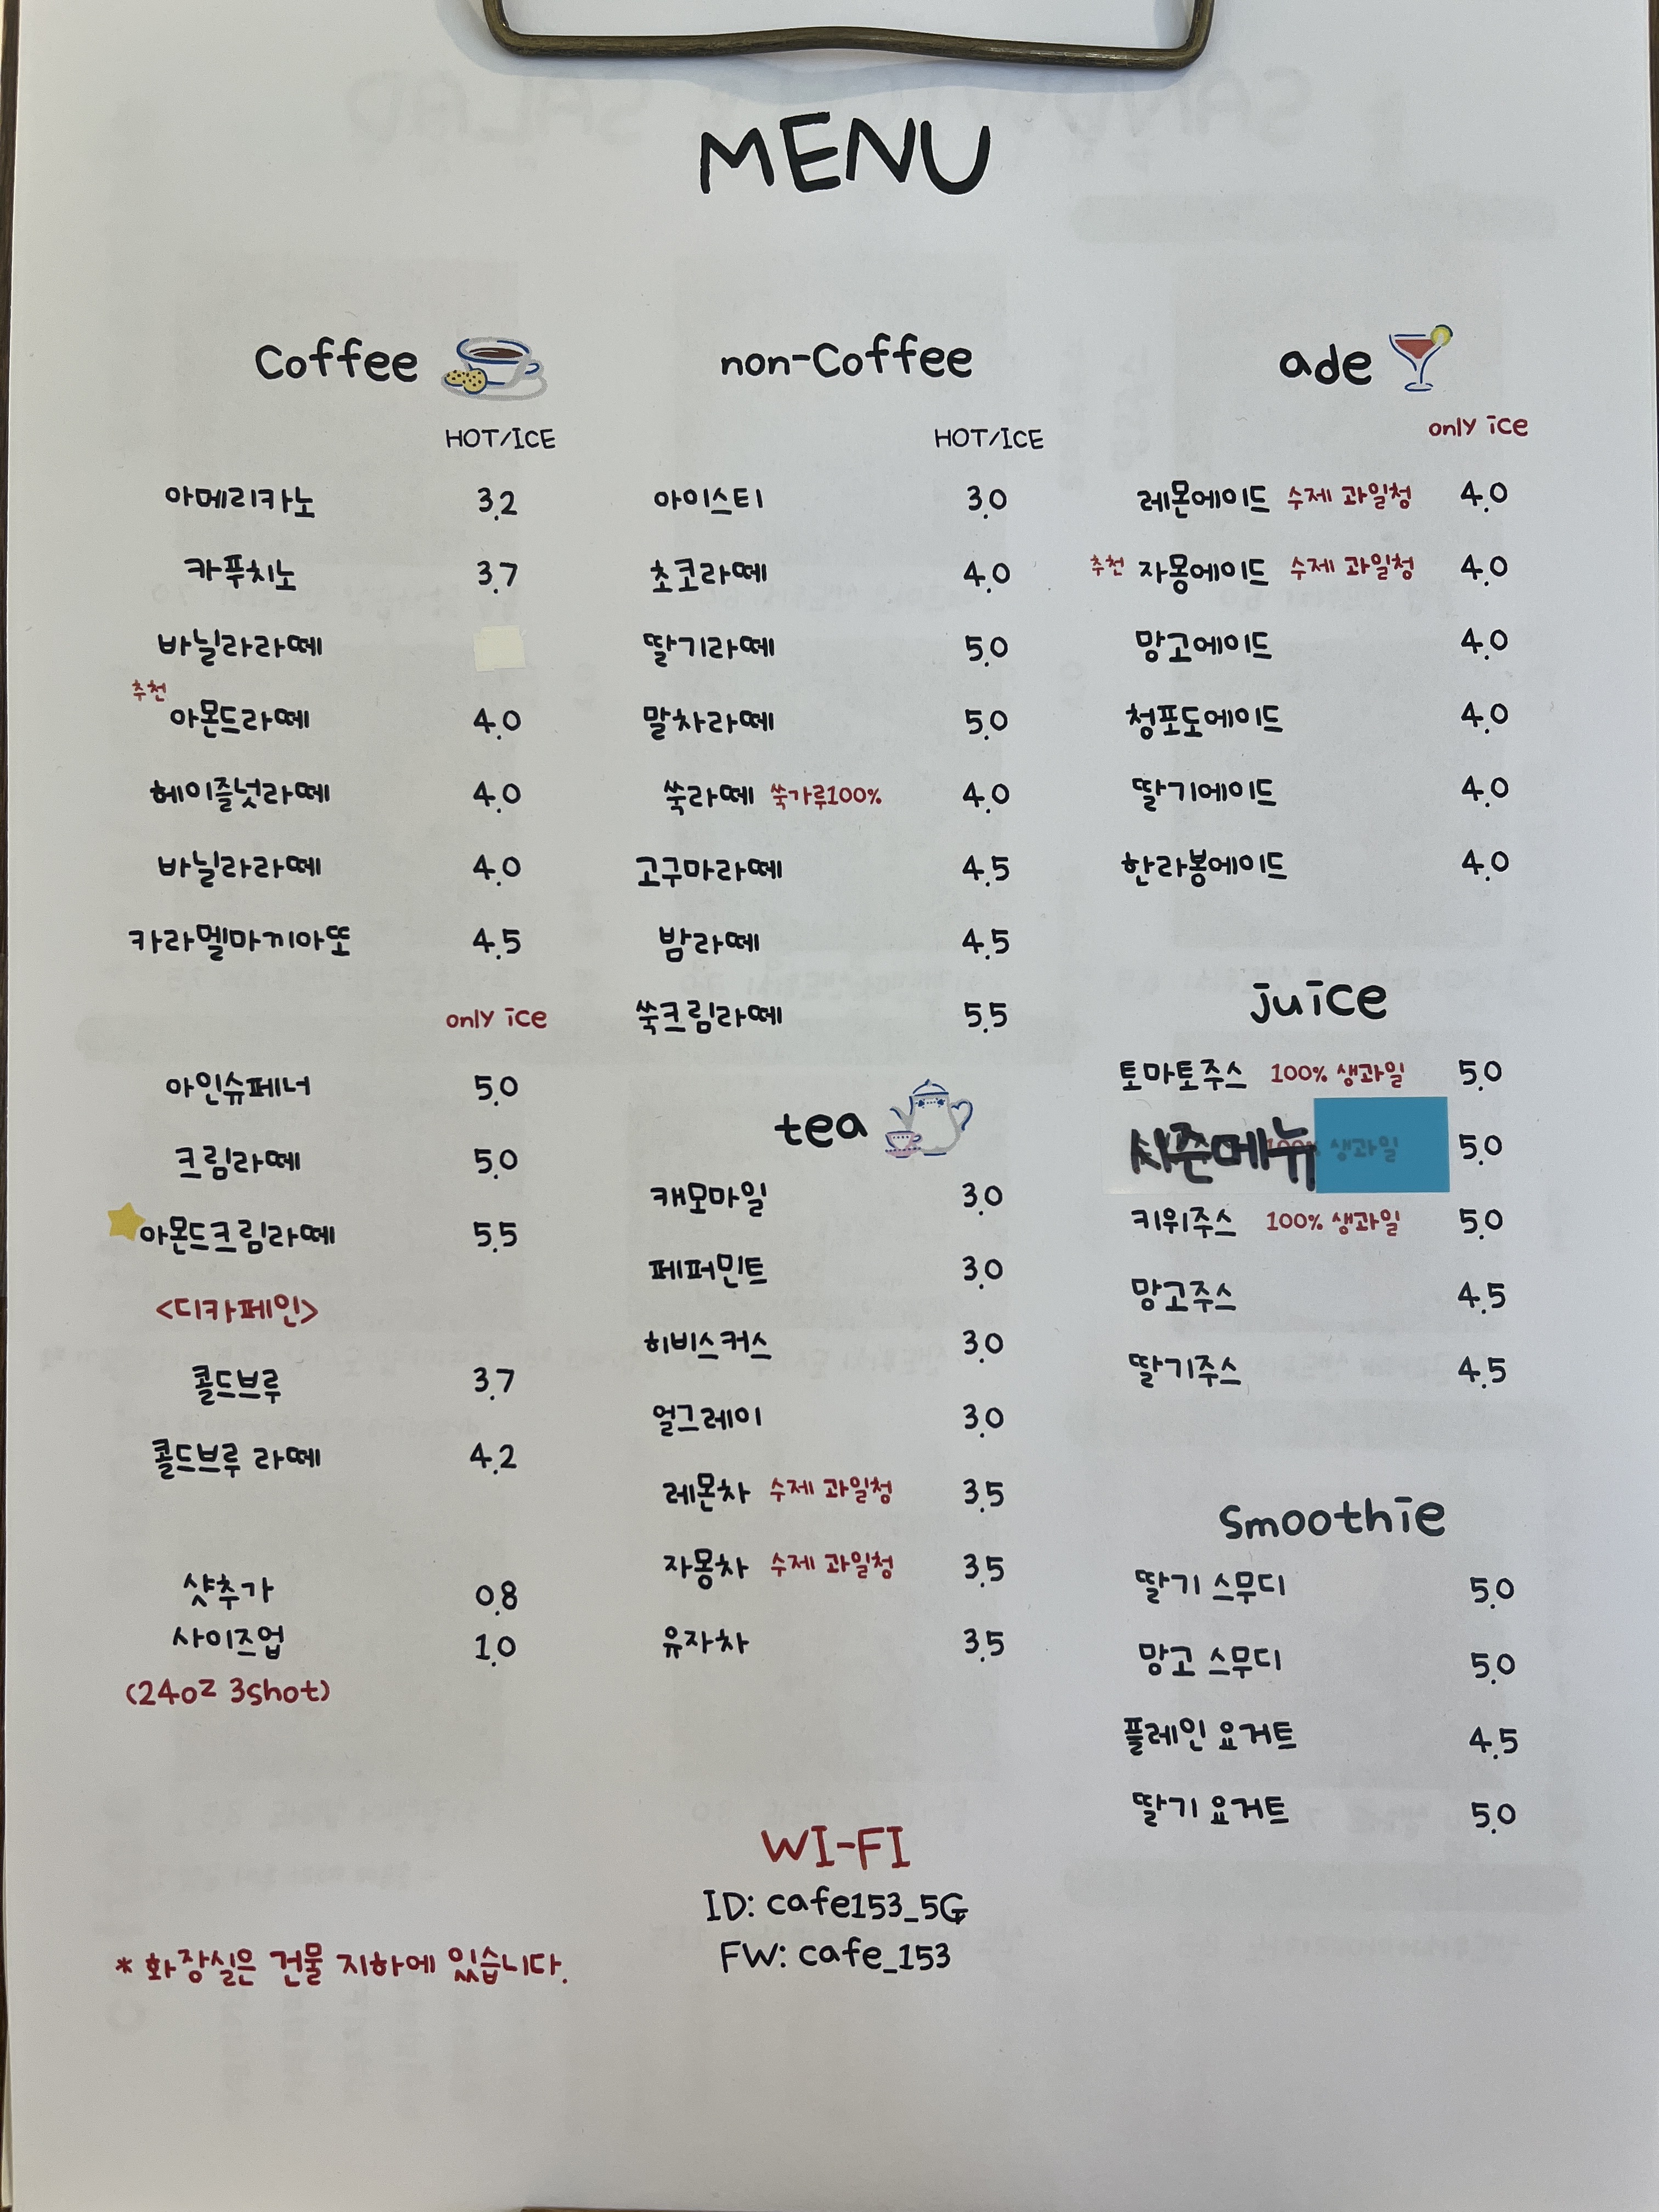 MENU
Coffee
HOT/ICE
아메리카노 3.2
카푸치노 3.7
바닐라라떼
추천
아몬드라떼 4.0
헤이즐넛라떼 4.0
바닐라라떼 4.0
카라멜마끼아또 4.5
only ice
아인슈페너 5.0
크림라떼 5.0
아몬드크림라떼 5.5
<디카페인>
콜드브루 3.7
콜드브루 라떼 4.2
샷추가 0.8
사이즈업 1.0
(24oz 3shot)
* 화장실은 건물 지하에 있습니다.
non-Coffee
HOT/ICE
아이스티 3.0
초코라떼 4.0
딸기라떼 5.0
말차라떼 5.0
쑥라떼 쑥가루100% 4.0
고구마라떼 4.5
밤라떼 4.5
쑥크림라떼 5.5
tea
캐모마일 3.0
페퍼민트 3.0
히비스커스 3.0
얼그레이 3.0
레몬차 수제 과일청 3.5
자몽차 수제 과일청 3.5
유자차 3.5
WI-FI
ID: cafe153_5G
PW: cafe_153
ade
only ice
레몬에이드 수제 과일청 4.0
추천 자몽에이드 수제 과일청 4.0
망고에이드 4.0
청포도에이드 4.0
딸기에이드 4.0
한라봉에이드 4.0
juice
토마토주스 100% 생과일 5.0
시즌메뉴 100% 생과일 5.0
키위주스 100% 생과일 5.0
망고주스 4.5
딸기주스 4.5
Smoothie
딸기 스무디 5.0
망고 스무디 5.0
플레인 요거트 4.5
딸기 요거트 5.0